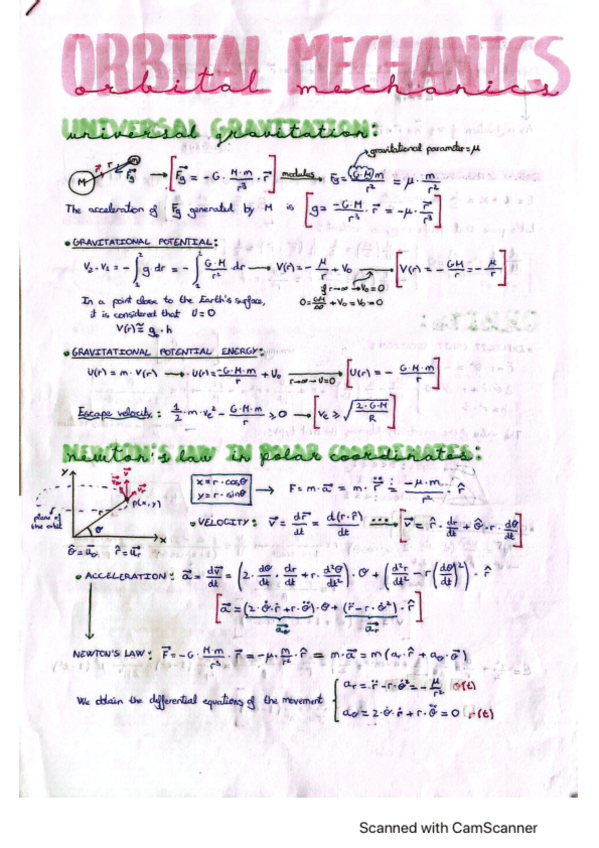 ORBITAL MECHANICS
orbital mechanics
universal gravitation:
gravitational parameter = μ
M r m F⃗g → [F⃗g = -G · M·m/r³ · r⃗] modulus → Fg = G·M·m/r² = μ · m/r²
The acceleration of F⃗g generated by M is [g = -G·M/r³ · r⃗ = -μ · r⃗/r³]
• GRAVITATIONAL POTENTIAL:
V₂ - V₁ = -∫₁² g dr = -∫₁² G·M/r² dr → V(r) = -μ/r + V₀ → [V(r) = -GM/r = -μ/r]
if r→∞ → V₀ = 0
In a point close to the Earth's surface,
0 = GM/∞ + V₀ → V₀ = 0
it is considered that U = 0
V(r) ≅ g · h
• GRAVITATIONAL POTENTIAL ENERGY:
U(r) = m · V(r) → U(r) = -G·M·m/r + U₀ r→∞ → U=0 [U(r) = - G·M·m/r]
Escape velocity: 1/2 · m · ve² - G·M·m/r ⩾ 0 → [ve ⩾ √(2·G·M/R)]
newton's law in polar coordinates:
y
x = r · cosθ
y = r · sinθ
→ F = m · a⃗ = m · r⃗̈ : -μ·m/r² · r̂
P(x,y)
plane of the orbit
θ x
θ̂ = a⃗θ r̂ = a⃗r
• VELOCITY: v⃗ = dr⃗/dt = d(r·r̂)/dt ... → [v⃗ = r̂ · dr/dt + θ̂ · r · dθ/dt]
• ACCELERATION: a⃗ = dv⃗/dt = (2 · dθ/dt · dr/dt + r · d²θ/dt²) · θ + (d²r/dt² - r(dθ/dt)²) · r̂
[a⃗ = (2·θ̇·ṙ + r·θ̈)·θ + (r̈ - r·θ̇²)·r̂]
a⃗θ a⃗r
NEWTON'S LAW: F⃗ = -G · M·m/r³ · r⃗ = -μ · m/r² · r̂ = m · a⃗ = m(ar · r̂ + aθ · θ̂)
We obtain the differential equations of the movement
ar = r̈ - r·θ̇² = -μ/r² θ(t)
aθ = 2·θ̇·ṙ + r·θ̈ = 0 r(t)
Scanned with CamScanner